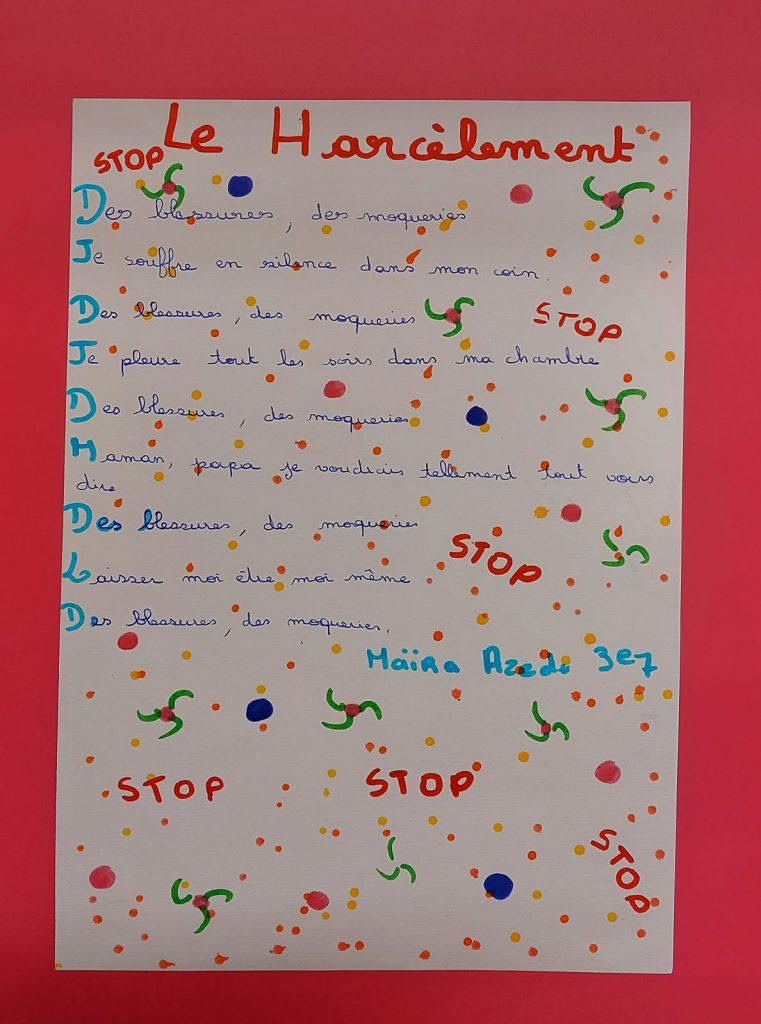 Le Harcèlement
STOP
Des blessures, des moqueries
Je souffre en silence dans mon coin.
Des blessures, des moqueries
STOP
Je pleure tout les soirs dans ma chambre
Des blessures, des moqueries
Maman, papa je voudrais tellement tout vous
dire
Des blessures, des moqueries
STOP
Laisser moi être moi même
Des blessures, des moqueries.
Maïra 3e7
STOP
STOP
STOP